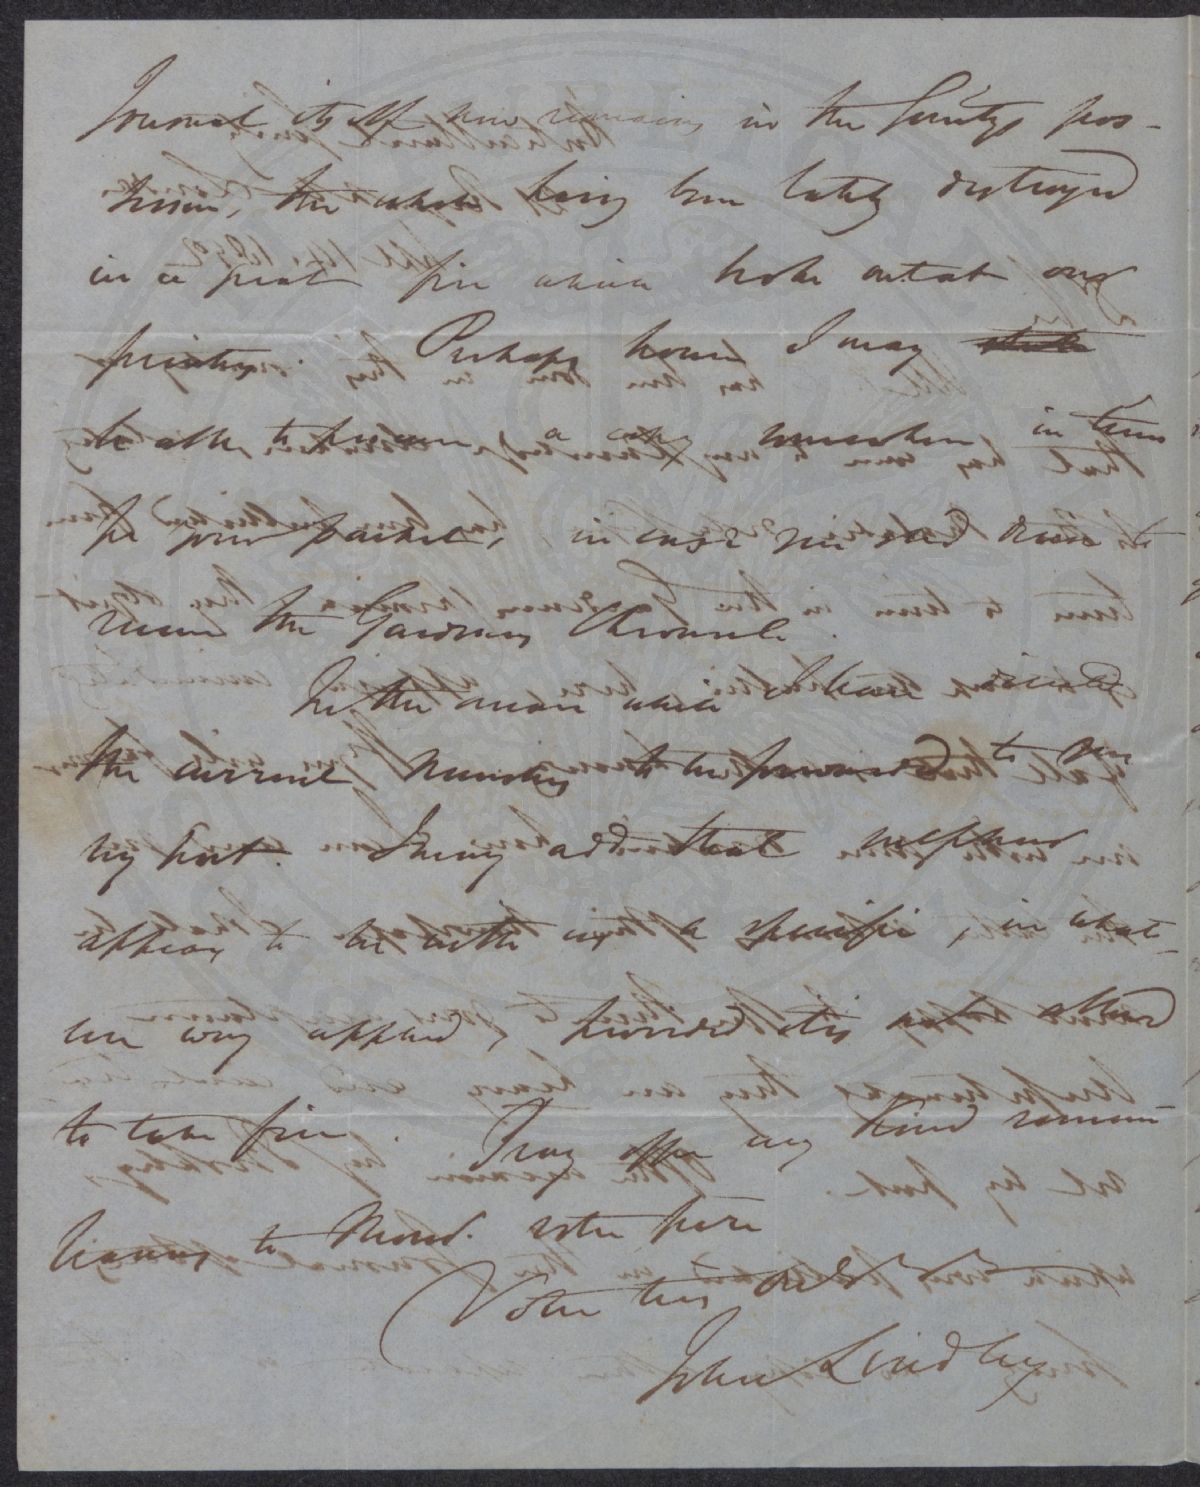 Journal itself now remaining in the Society's pos-
session, the whole having been lately destroyed
in a great fire which broke out at our
printers. Perhaps however I may
be able to procure a copy somewhere in time
for your packet, in case you do not
receive the Gardeners Chronicle.
In the mean while I have
the current Number to be forwarded to you
by post. I may add that sulphur
appears to be with us a specific, in what-
ever way applied, provided it is not allowed
to take fire. Pray offer my kind remem-
brances to
Yours very
John Lindley